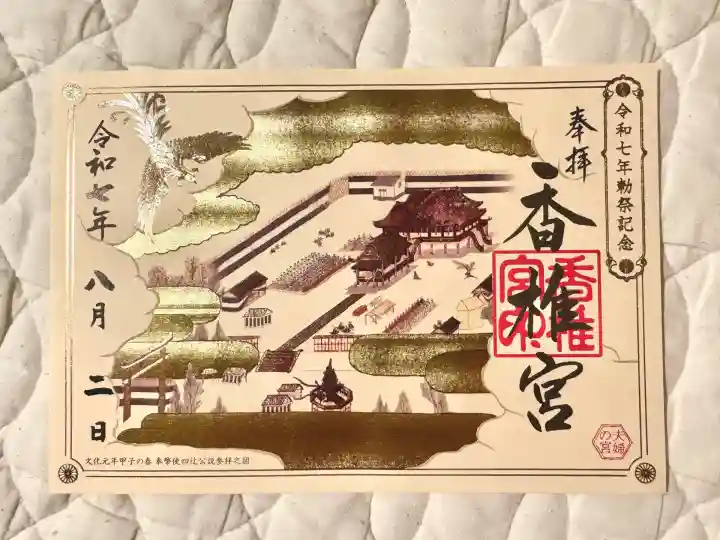 令和七年勅祭記念
奉拝
香椎宮
香椎宮印
令和七年
八月
二日
夫婦の宮
文化元年甲子の春 奉幣使四辻公説参拝之図